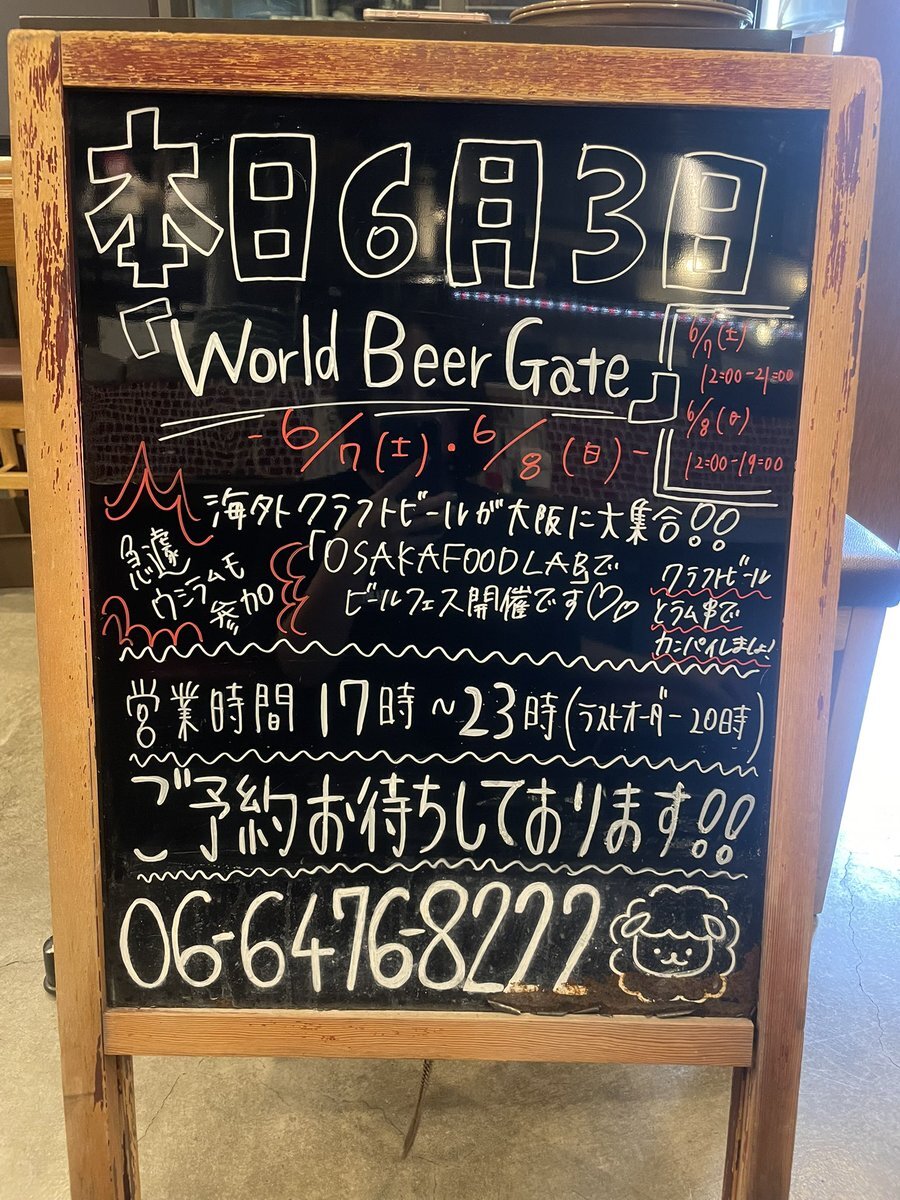 本日6月3日
「World Beer Gate」
6/7(土)
12:00-21:00
6/8(日)
12:00-19:00
- 6/7(土)・6/8(日) -
海外クラフトビールが大阪に大集合!!
「OSAKAFOODLABで
ビールフェス開催です♡♡
急遽
ウシラムも
参加
クラフトビール
とラム串で
カンパイしましょ!
営業時間 17時~23時(ラストオーダー20時)
ご予約お待ちしております!!
06-6476-8222